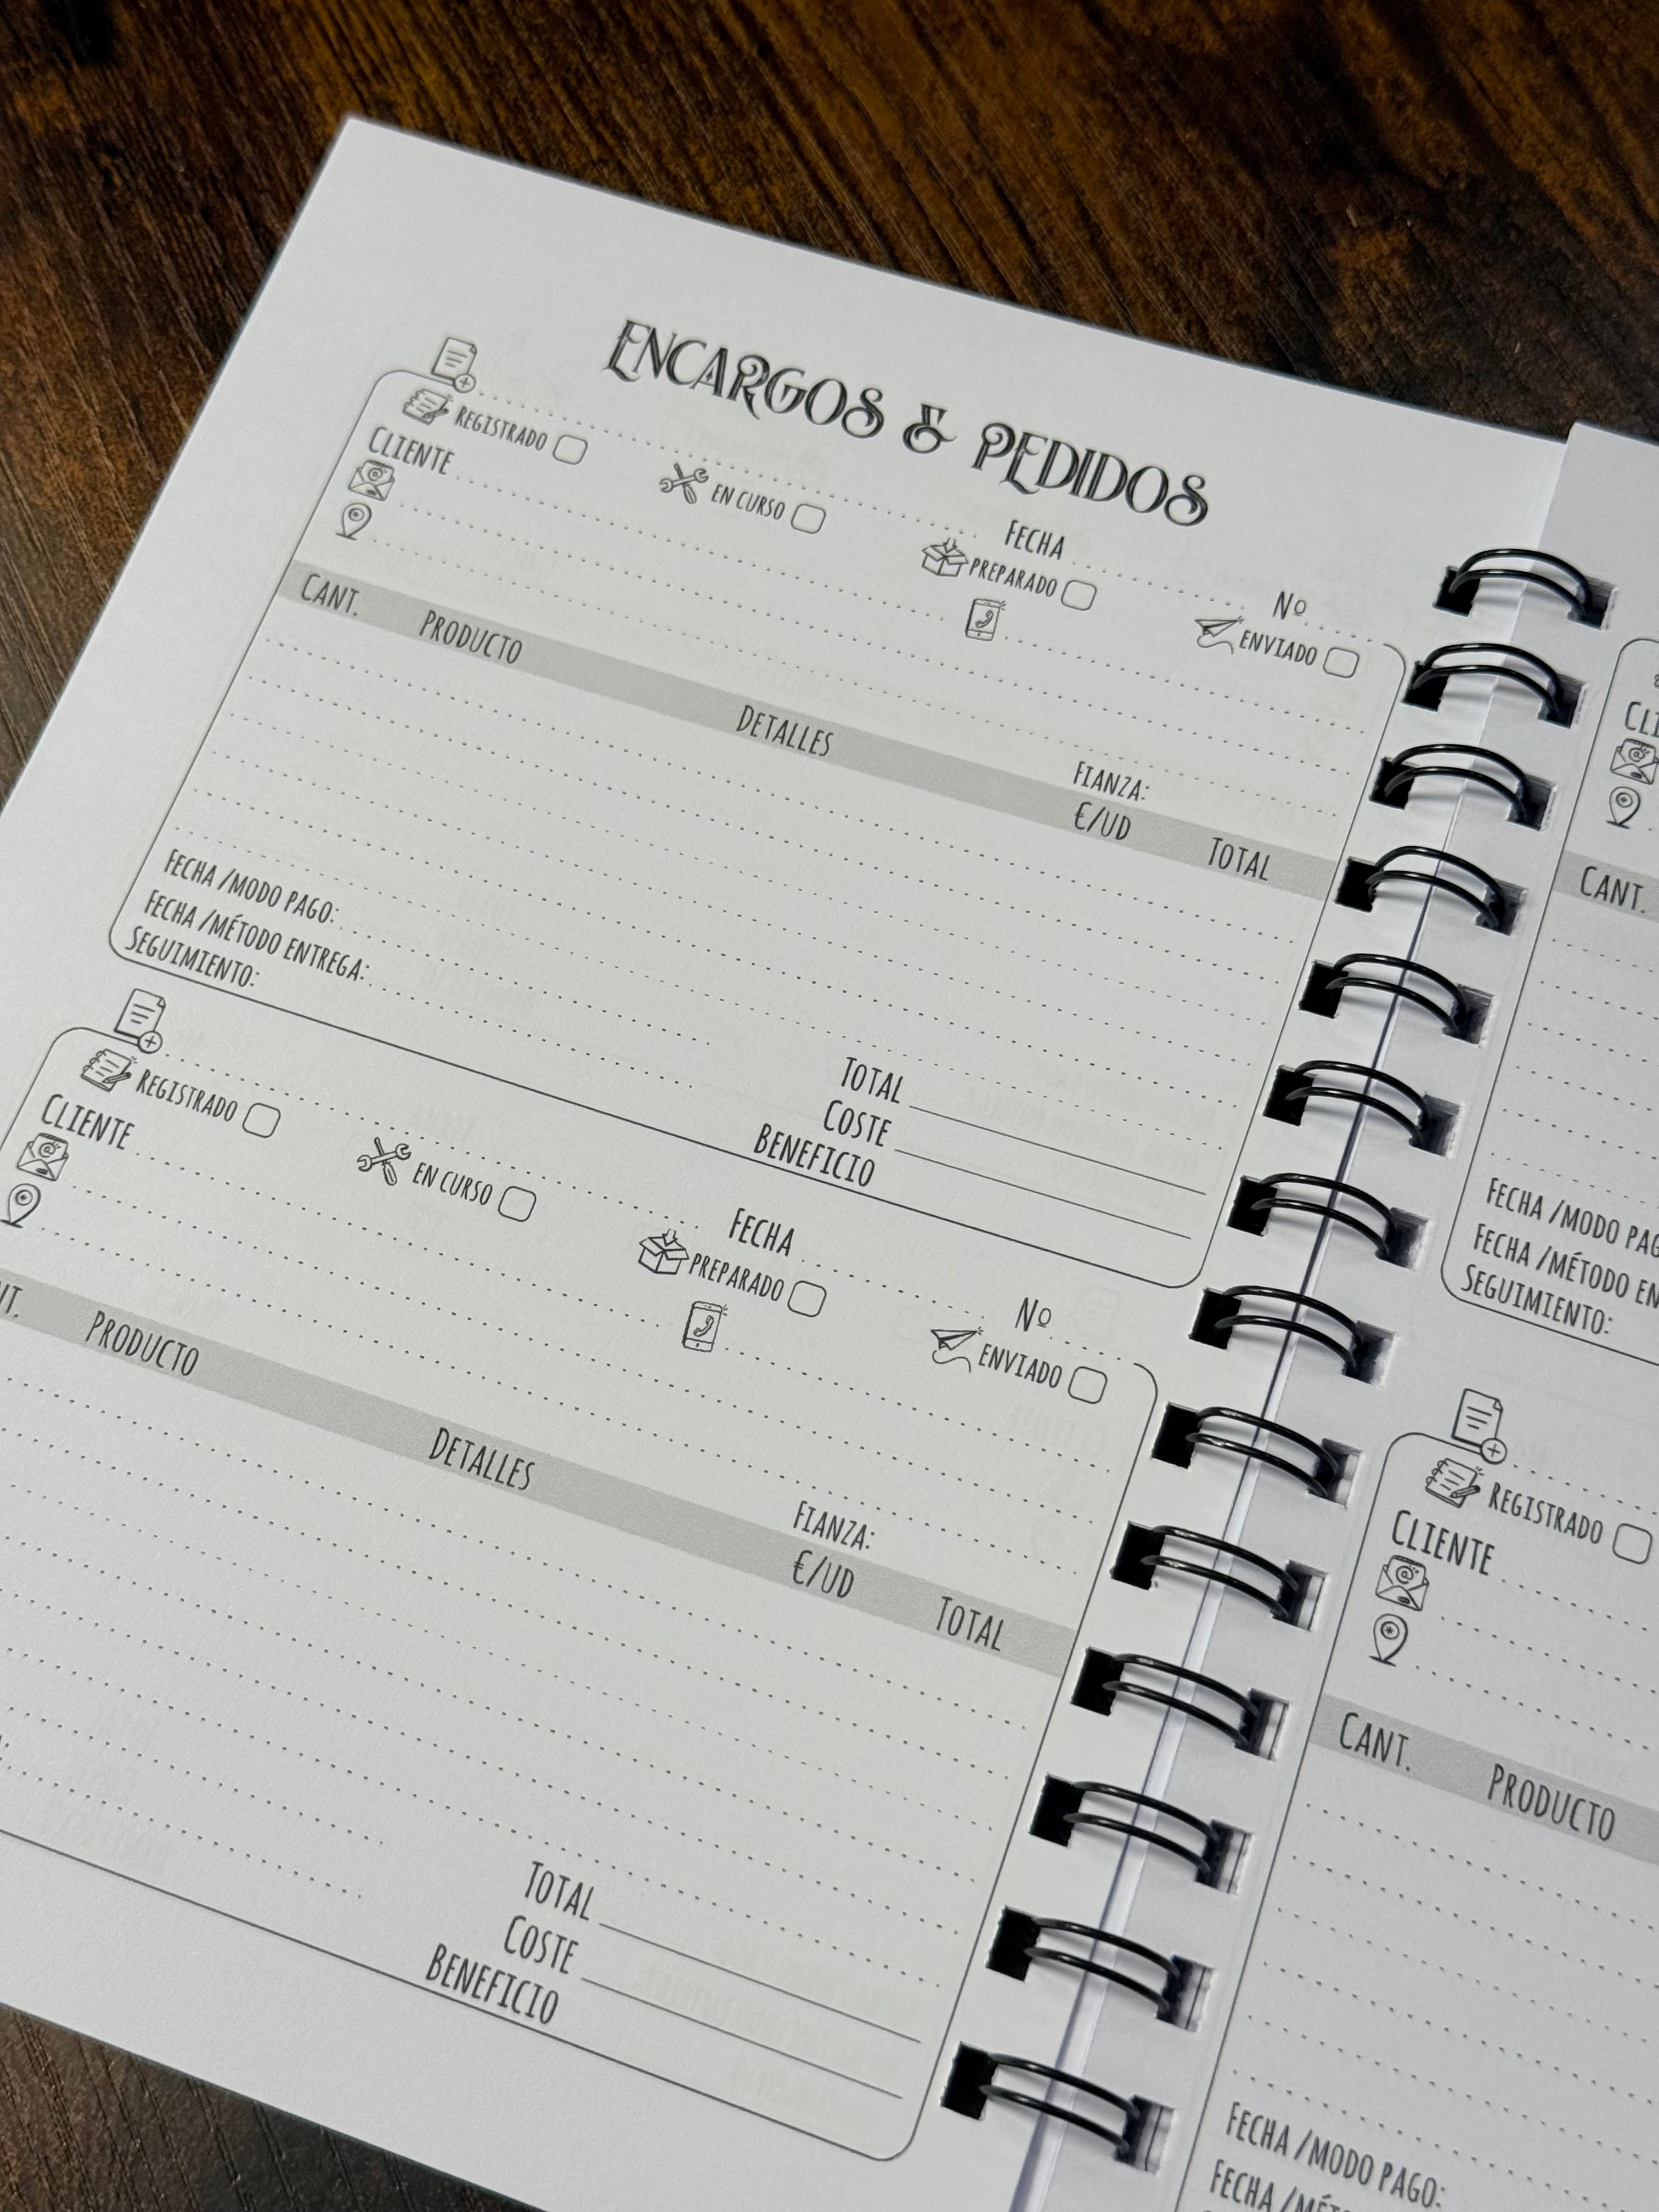 ENCARGOS & PEDIDOS
FECHA Nº
REGISTRADO EN CURSO PREPARADO ENVIADO
CLIENTE
FIANZA:
CANT. PRODUCTO DETALLES €/UD TOTAL
FECHA /MODO PAGO:
FECHA /MÉTODO ENTREGA:
SEGUIMIENTO:
TOTAL
COSTE
BENEFICIO
FECHA Nº
REGISTRADO EN CURSO PREPARADO ENVIADO
CLIENTE
FIANZA:
NT. PRODUCTO DETALLES €/UD TOTAL
TOTAL
COSTE
BENEFICIO
CLI
CANT.
FECHA /MODO PAG
FECHA /MÉTODO EN
SEGUIMIENTO:
REGISTRADO
CLIENTE
CANT. PRODUCTO
FECHA /MODO PAGO:
FECHA /MÉT